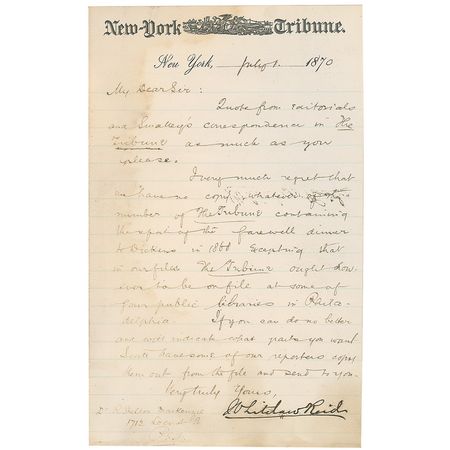 New-York Tribune.
New York, July 1 1870
My Dear Sir:
Quote from editorials
and Smalley's correspondence in The
Tribune as much as you
please.
I very much regret that
we have no copy whatever of
number of The Tribune containing
the report of the farewell dinner
to Dickens in 1868 excepting that
in our files. The Tribune ought how-
ever to be on file at some of
your public libraries in Phila-
delphia. If you can do no better
and will indicate what parts you want
I will have some of our reporters copy
them out from the file and send to you.
Very truly Yours,
Whitelaw Reid
Dr R Shelton Mackenzie
1712 Locust